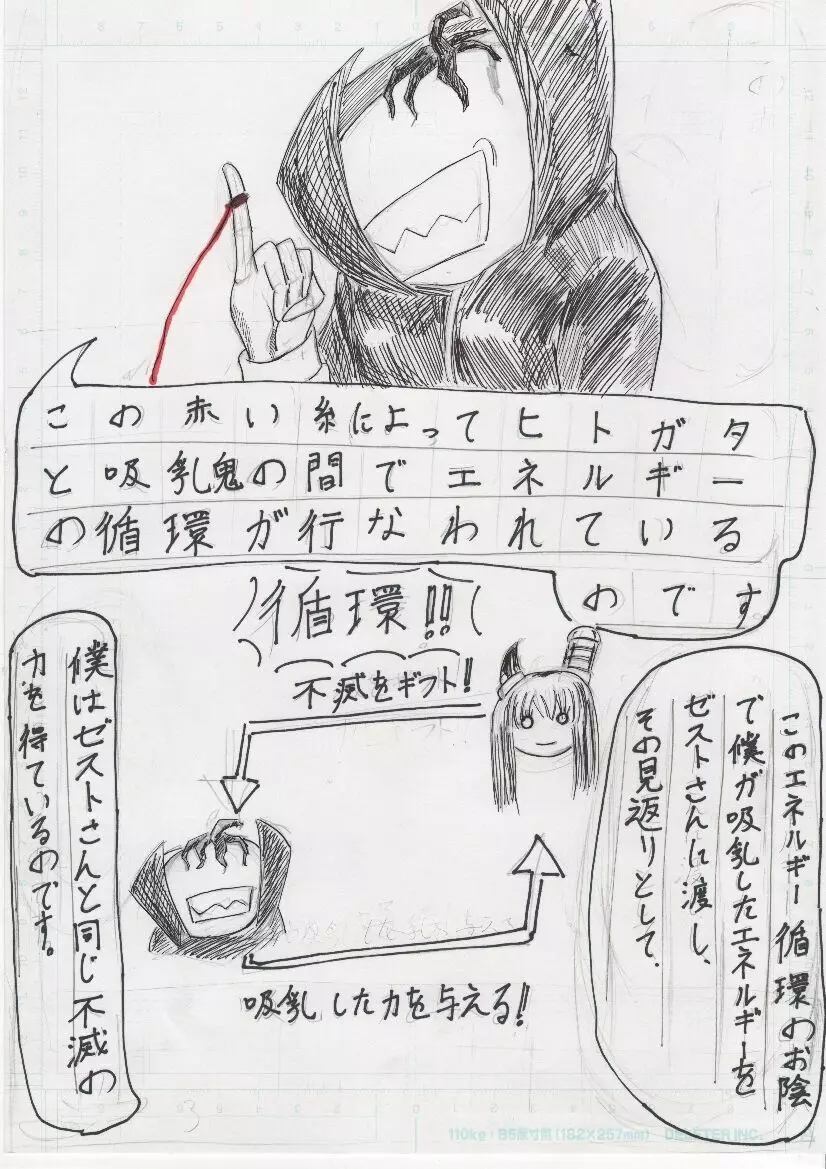 この赤い糸によってヒトガタ
と吸乳鬼の間でエネルギー
の循環が行なわれている
のです。
循環!!
不滅をギフト!
このエネルギー循環のお陰
で僕が吸乳したエネルギーを
ゼストさんに渡し、
その見返りとして、
吸乳した力を与える!!
僕はゼストさんと同じ不滅の
力を得ているのです。
110kg B5原寸用(182×257mm) DELETER INC.